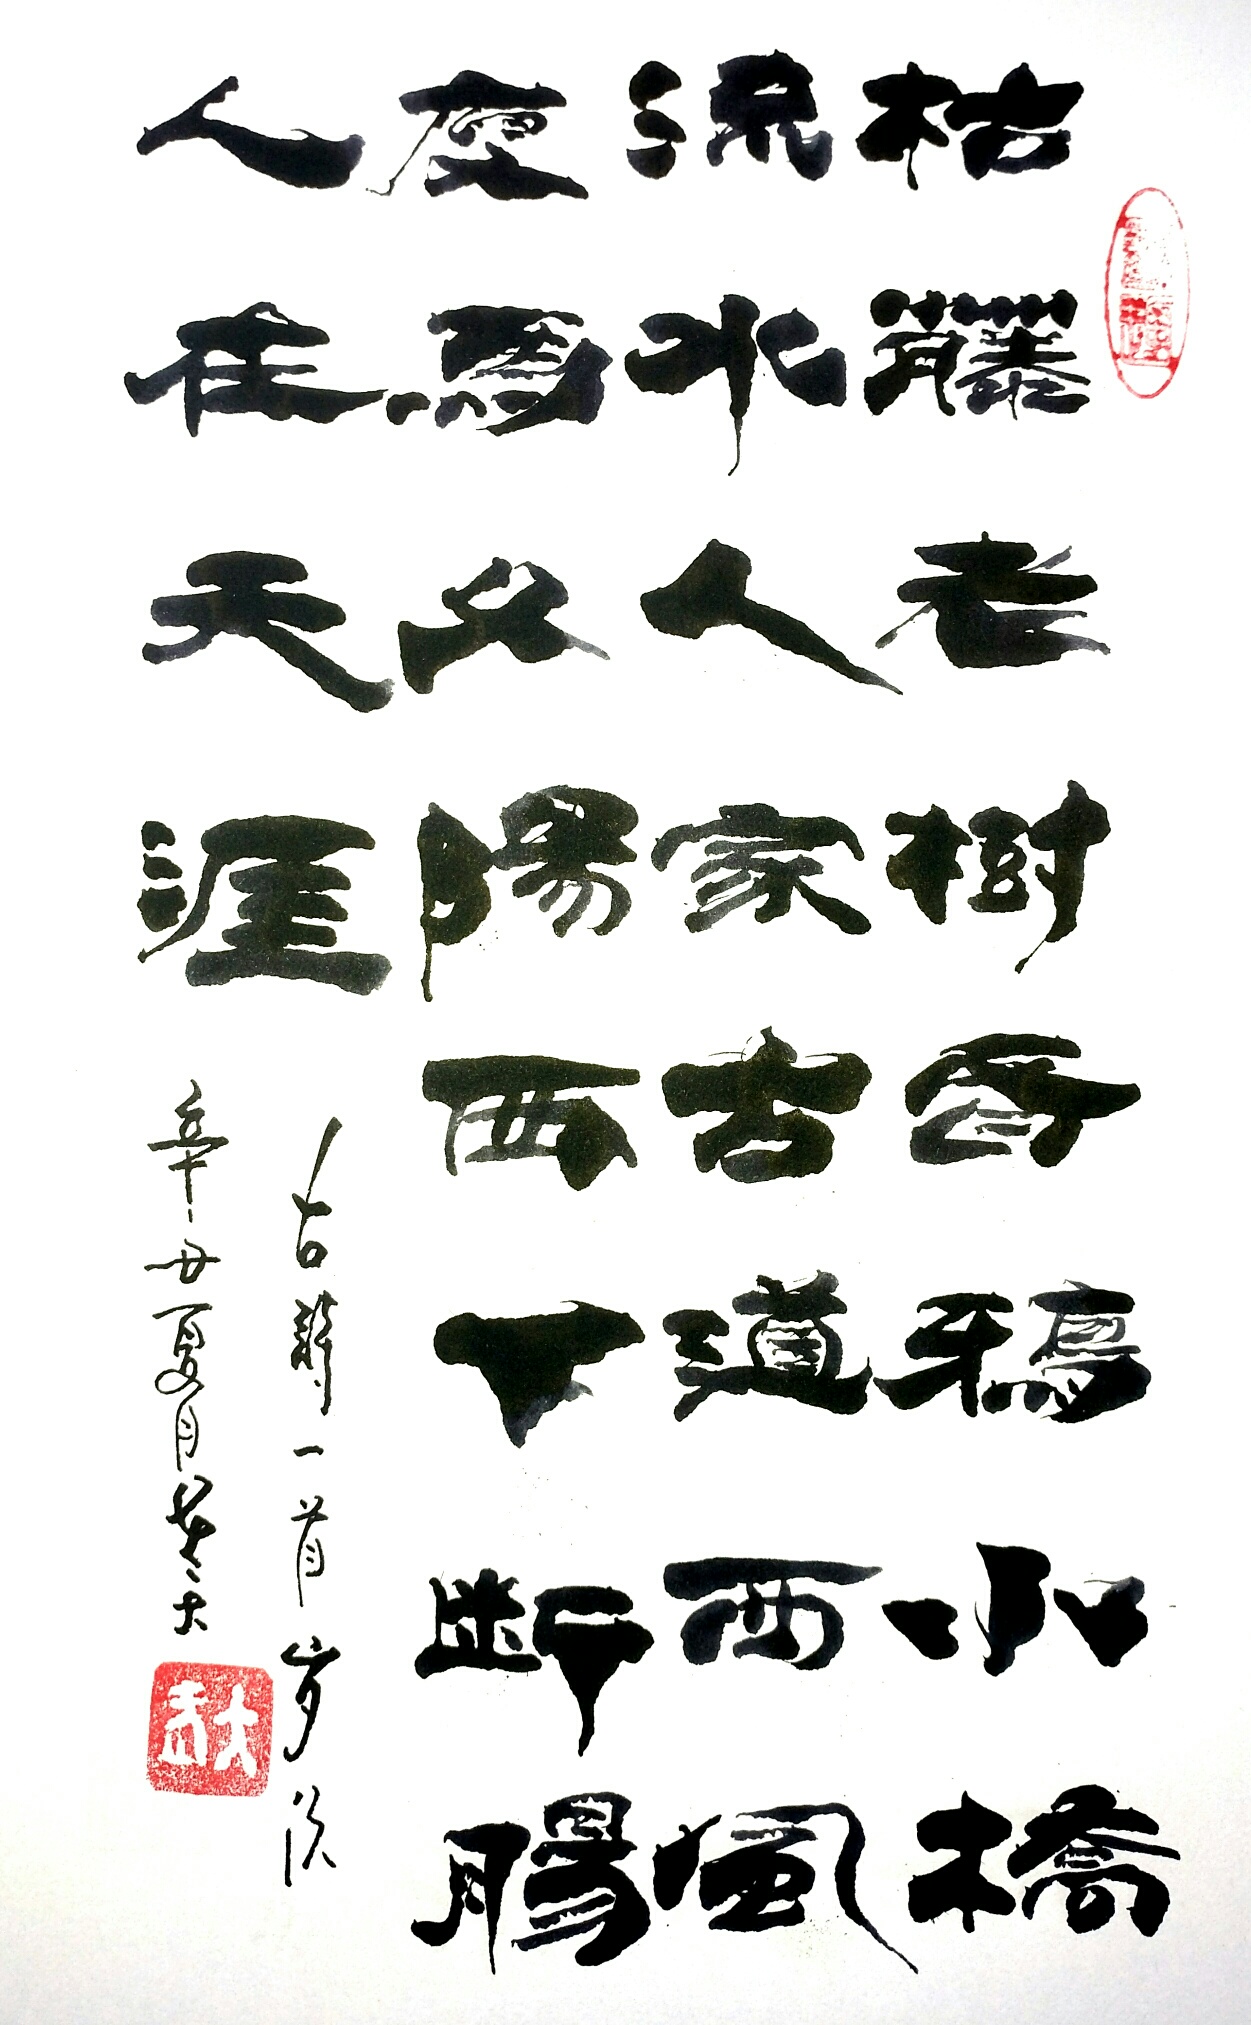 枯藤老樹昏鴉小橋
流水人家古道西風
瘦馬夕陽西下斷腸
人在天涯
古詩一首岁次
辛丑夏月